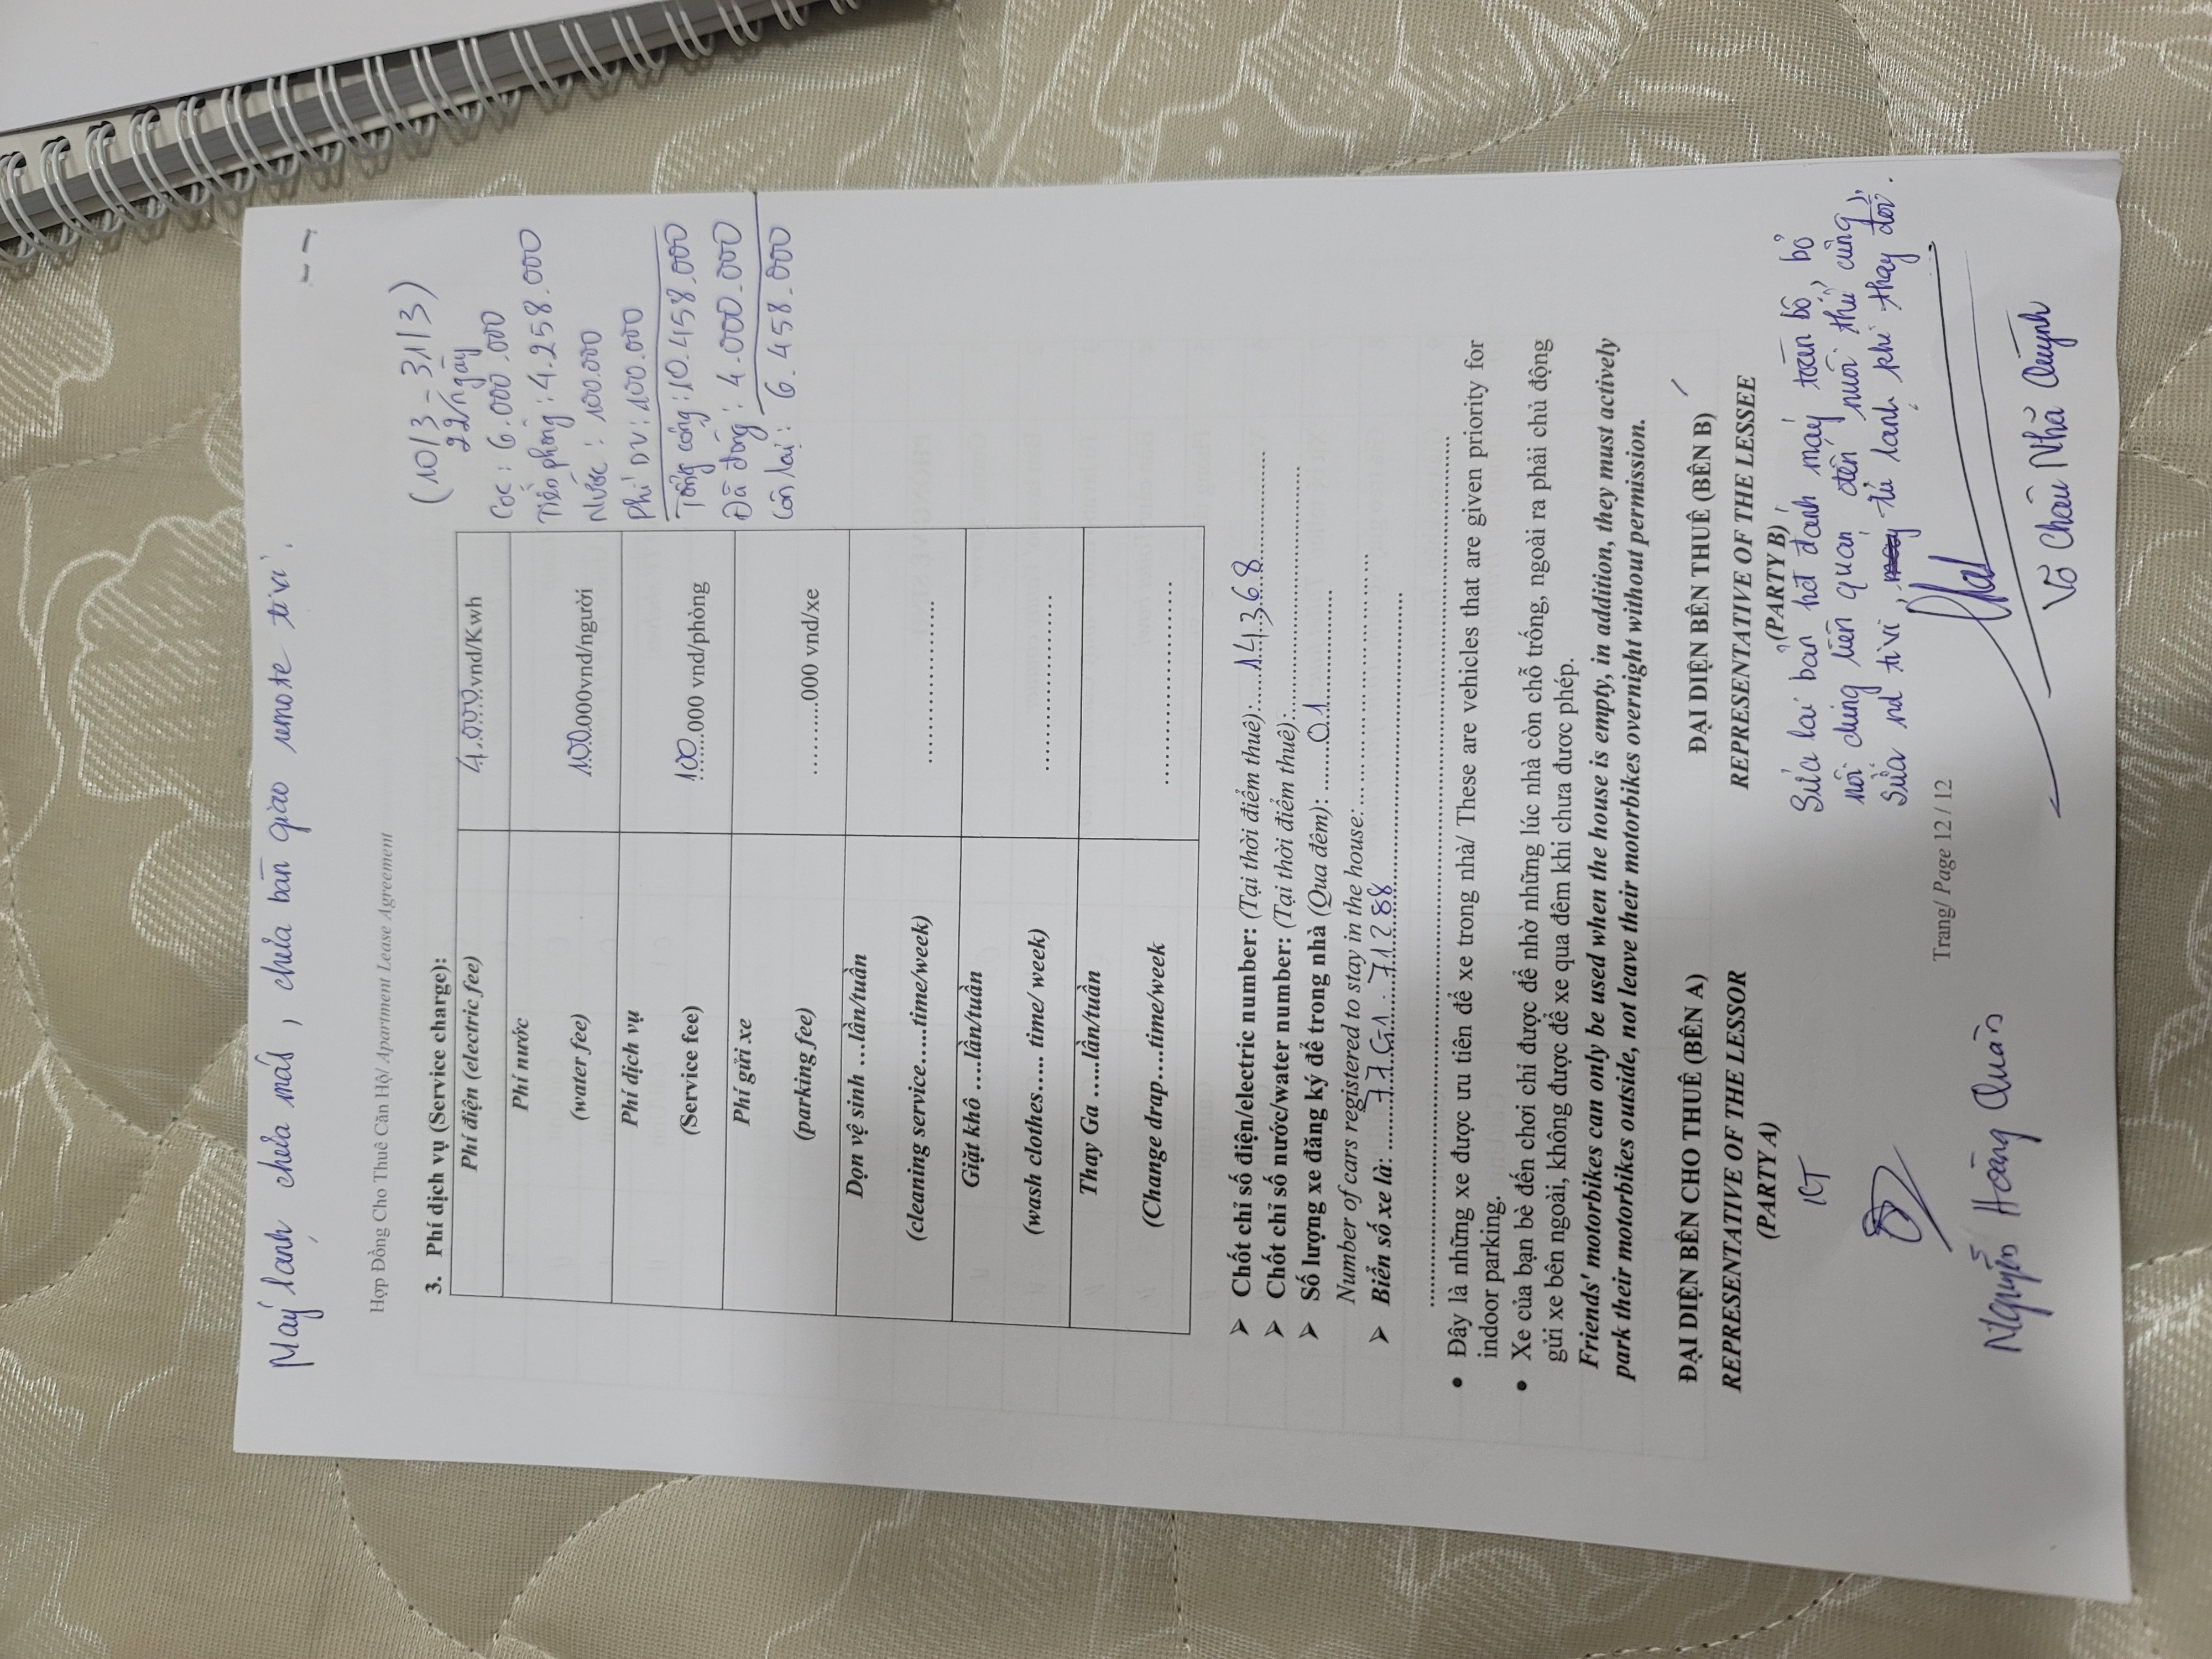 Máy lạnh chưa mát, chưa bàn giao remote tivi.
Hợp Đồng Cho Thuê Căn Hộ/ Apartment Lease Agreement
3. Phí dịch vụ (Service charge):
Phí điện (electric fee) 4.000 vnd/Kwh
Phí nước
(water fee) 100.000vnd/người
Phí dịch vụ
(Service fee) 100.000 vnd/phòng
Phí gửi xe
(parking fee) ..........000 vnd/xe
Dọn vệ sinh …lần/tuần
(cleaning service…..time/week) ........................
Giặt khô ….lần/tuần
(wash clothes….. time/ week) ........................
Thay Ga …..lần/tuần
(Change drap….time/week ........................
(10/3 - 31/3)
22/ngày
Cọc : 6.000.000
Tiền phòng : 4.258.000
Nước : 100.000
Phí DV : 100.000
Tổng cộng : 10.458.000
Đã đóng : 4.000.000
Còn lại : 6.458.000
➢ Chốt chỉ số điện/electric number: (Tại thời điểm thuê):......14368...............
➢ Chốt chỉ số nước/water number: (Tại thời điểm thuê):...............................
➢ Số lượng xe đăng ký để trong nhà (Qua đêm): ..........01...............
Number of cars registered to stay in the house:...............................
➢ Biển số xe là: ........77G1. 71288...............................
...............................................................................................
• Đây là những xe được ưu tiên để xe trong nhà/ These are vehicles that are given priority for
indoor parking.
• Xe của bạn bè đến chơi chỉ được để nhờ những lúc nhà còn chỗ trống, ngoài ra phải chủ động
gửi xe bên ngoài, không được để xe qua đêm khi chưa được phép.
Friends' motorbikes can only be used when the house is empty, in addition, they must actively
park their motorbikes outside, not leave their motorbikes overnight without permission.
ĐẠI DIỆN BÊN CHO THUÊ (BÊN A)
REPRESENTATIVE OF THE LESSOR
(PARTY A)
KT
Nguyễn Hoàng Quân
ĐẠI DIỆN BÊN THUÊ (BÊN B)
REPRESENTATIVE OF THE LESSEE
(PARTY B)
Sửa lại bản hđ đánh máy toàn bộ, bỏ
nội dung liên quan đến nuôi thú cưng,
Sửa nd tivi, tủ lạnh khi thay đổi.
Võ Châu Nhã Quỳnh
Trang/ Page 12 / 12